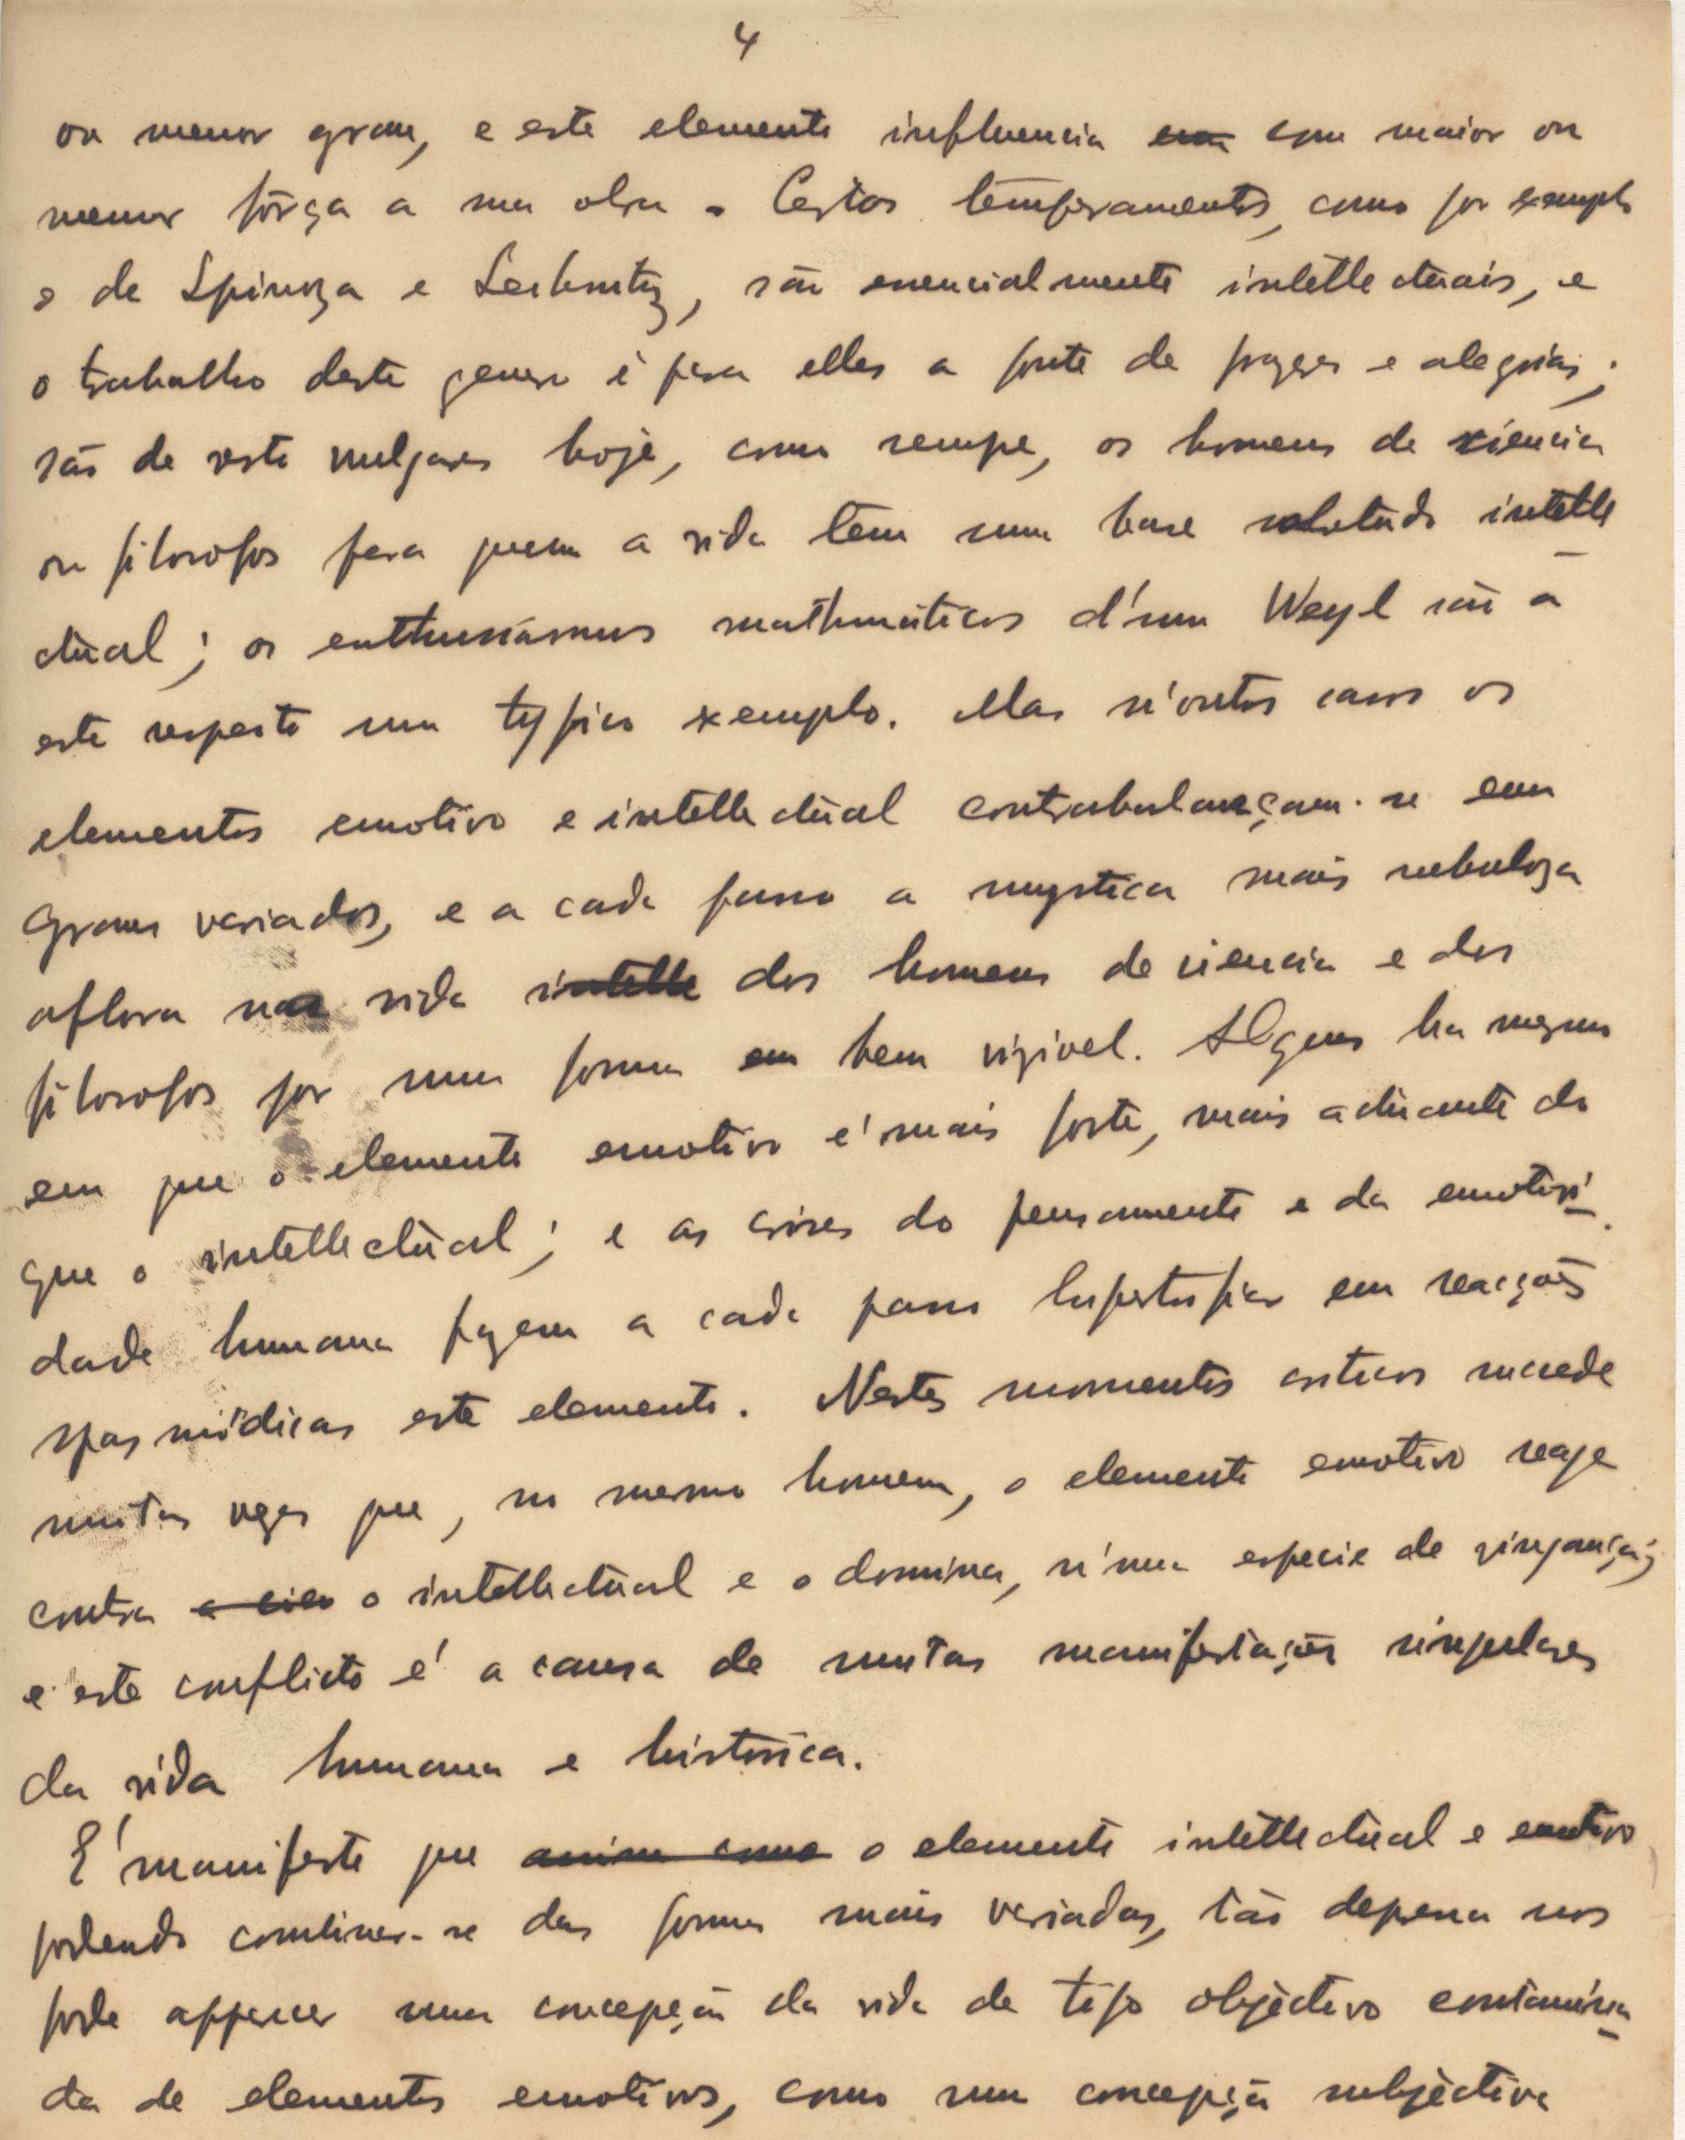 4
ou menor grau, e este elemento influencia em com maior ou
menor fôrça a sua obra. Certos temperamentos, como por exemplo
o de Spinoza e Leibnitz, são essencialmente intellectuais, e
o trabalho deste genero é para elles a fonte de prazeres e alegrias;
são de resto vulgares hoje, como sempre, os homens de sciencia
ou filosofos para quem a vida tem uma base sobretudo intelle
ctual; os enthusiasmos mathematicos d'um Weyl são a
este respeito um typico exemplo. Mas n'outros casos os
elementos emotivo e intellectual contrabalançam-se em
graus variados, e a cada passo a mystica mais nebuloza
aflora na vida intelle dos homens de sciencia e dos
filosofos por uma forma em bem vizivel. Alguns ha mesmo
em que o elemento emotivo é mais forte, mais actuante do
que o intellectual; e as crises do pensamento e da emotivi-
dade humana fazem a cada passo hipertrofiar em reacções
spasmódicas este elemento. Nestes momentos criticos sucede
muitas vezes que, no mesmo homem, o elemento emotivo reage
contra o intellectual e o domina, n'uma especie de vingança;
e este conflicto é a causa de muitas manifestações singulares
da vida humana e historica.
É manifesto que assim como o elemento intellectual e emotivo
podendo combinar-se das formas mais variadas, tão depressa nos
pode apparecer uma concepção da vida de tipo objectivo contamina
da de elementos emotivos, como uma concepção subjectiva